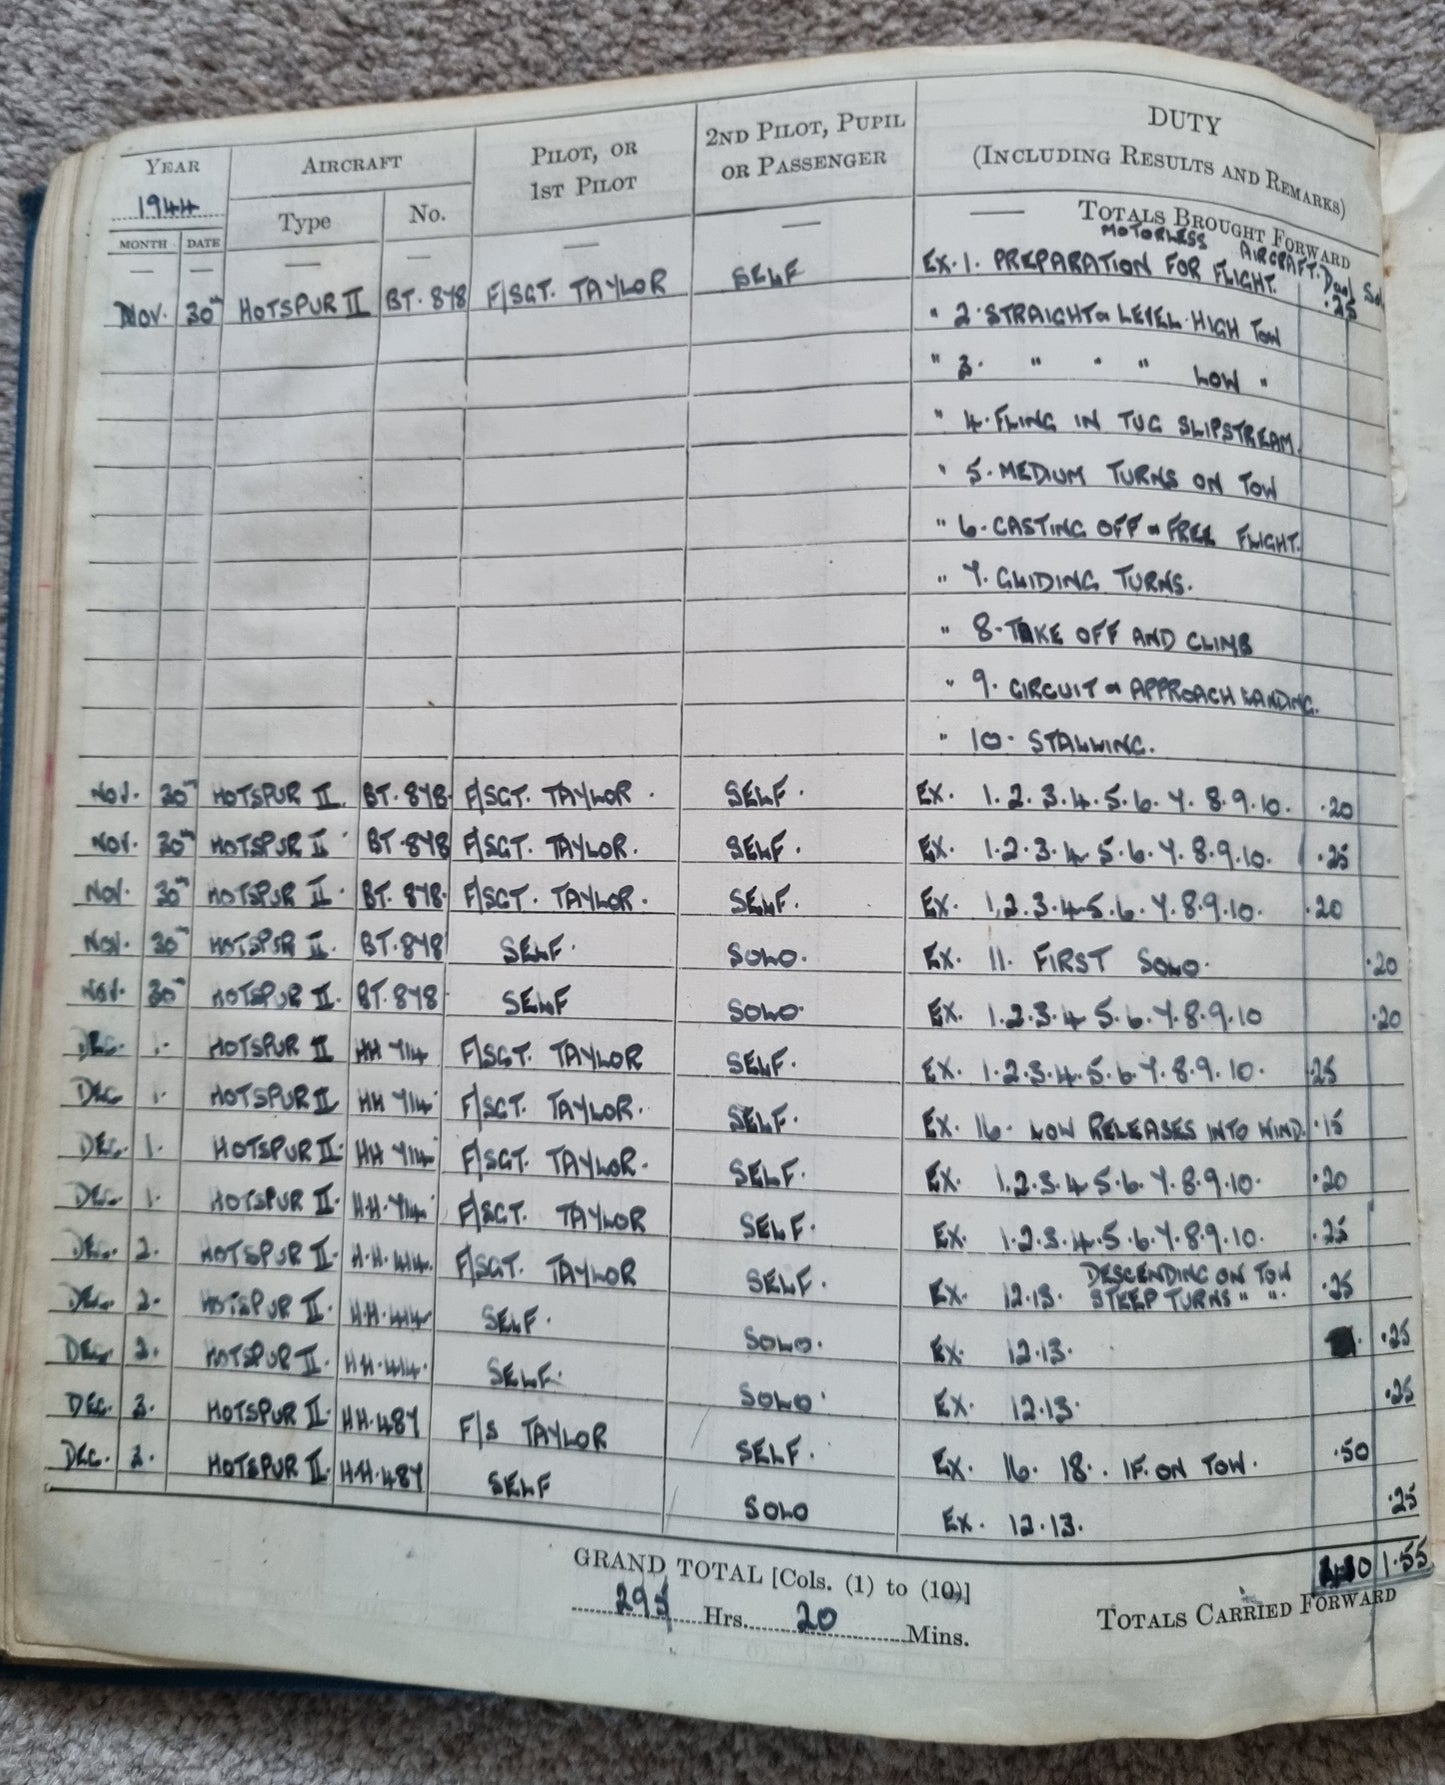 YEAR AIRCRAFT PILOT, OR 1ST PILOT 2ND PILOT, PUPIL OR PASSENGER DUTY (INCLUDING RESULTS AND REMARKS)
1944 Type No.
MONTH DATE
— — — — — — — TOTALS BROUGHT FORWARD
MOTORLESS AIRCRAFT. Dual
NOV. 30TH HOTSPUR II BT. 878 F/SGT. TAYLOR SELF EX. 1. PREPARATION FOR FLIGHT. .25
" 2. STRAIGHT & LEVEL. HIGH TOW
" 3. " " " LOW "
" 4. FLING IN TUG SLIPSTREAM.
" 5. MEDIUM TURNS ON TOW
" 6. CASTING OFF & FREE FLIGHT.
" 7. GLIDING TURNS.
" 8. TAKE OFF AND CLIMB
" 9. CIRCUIT & APPROACH LANDING.
" 10. STALLING.
NOV. 30TH HOTSPUR II. BT. 878. F/SGT. TAYLOR. SELF. EX. 1. 2. 3. 4. 5. 6. 7. 8. 9. 10. .20
NOV. 30TH HOTSPUR II BT. 878 F/SGT. TAYLOR. SELF. EX. 1. 2. 3. 4. 5. 6. 7. 8. 9. 10. .25
NOV. 30TH HOTSPUR II. BT. 878. F/SGT. TAYLOR. SELF. EX. 1. 2. 3. 4. 5. 6. 7. 8. 9. 10. .20
NOV. 30TH HOTSPUR II. BT. 878 SELF. SOLO. EX. 11. FIRST SOLO. .20
NOV. 30TH HOTSPUR II. BT. 878 SELF SOLO. EX. 1. 2. 3. 4. 5. 6. 7. 8. 9. 10 .20
DEC. 1. HOTSPUR II HH 714 F/SGT. TAYLOR SELF. EX. 1. 2. 3. 4. 5. 6. 7. 8. 9. 10. .25
DEC 1. HOTSPUR II HH 714 F/SGT. TAYLOR. SELF. EX. 16. LOW RELEASES INTO WIND. .15
DEC. 1. HOTSPUR II. HH 714 F/SGT. TAYLOR. SELF. EX. 1. 2. 3. 4. 5. 6. 7. 8. 9. 10. .20
DEC. 1. HOTSPUR II. H.H. 714 F/SGT. TAYLOR SELF. EX. 1. 2. 3. 4. 5. 6. 7. 8. 9. 10. .25
DEC. 2. HOTSPUR II. H.H. F/SGT. TAYLOR SELF. EX. 12. 13. DESCENDING ON TOW STEEP TURNS " ". .25
DEC. 2. HOTSPUR II. H.H. SELF. SOLO. EX. 12. 13. .25
DEC. 2. HOTSPUR II. HH. SELF. SOLO. EX. 12. 13. .25
DEC. HOTSPUR II. HH. 487 F/S TAYLOR SELF. EX. 16. 18. IF. ON TOW. .50
DEC. HOTSPUR II. HH. 487 SELF SOLO EX. 12. 13. .25
1.55
GRAND TOTAL [Cols. (1) to (10)]
295 Hrs. 20 Mins.
TOTALS CARRIED FORWARD